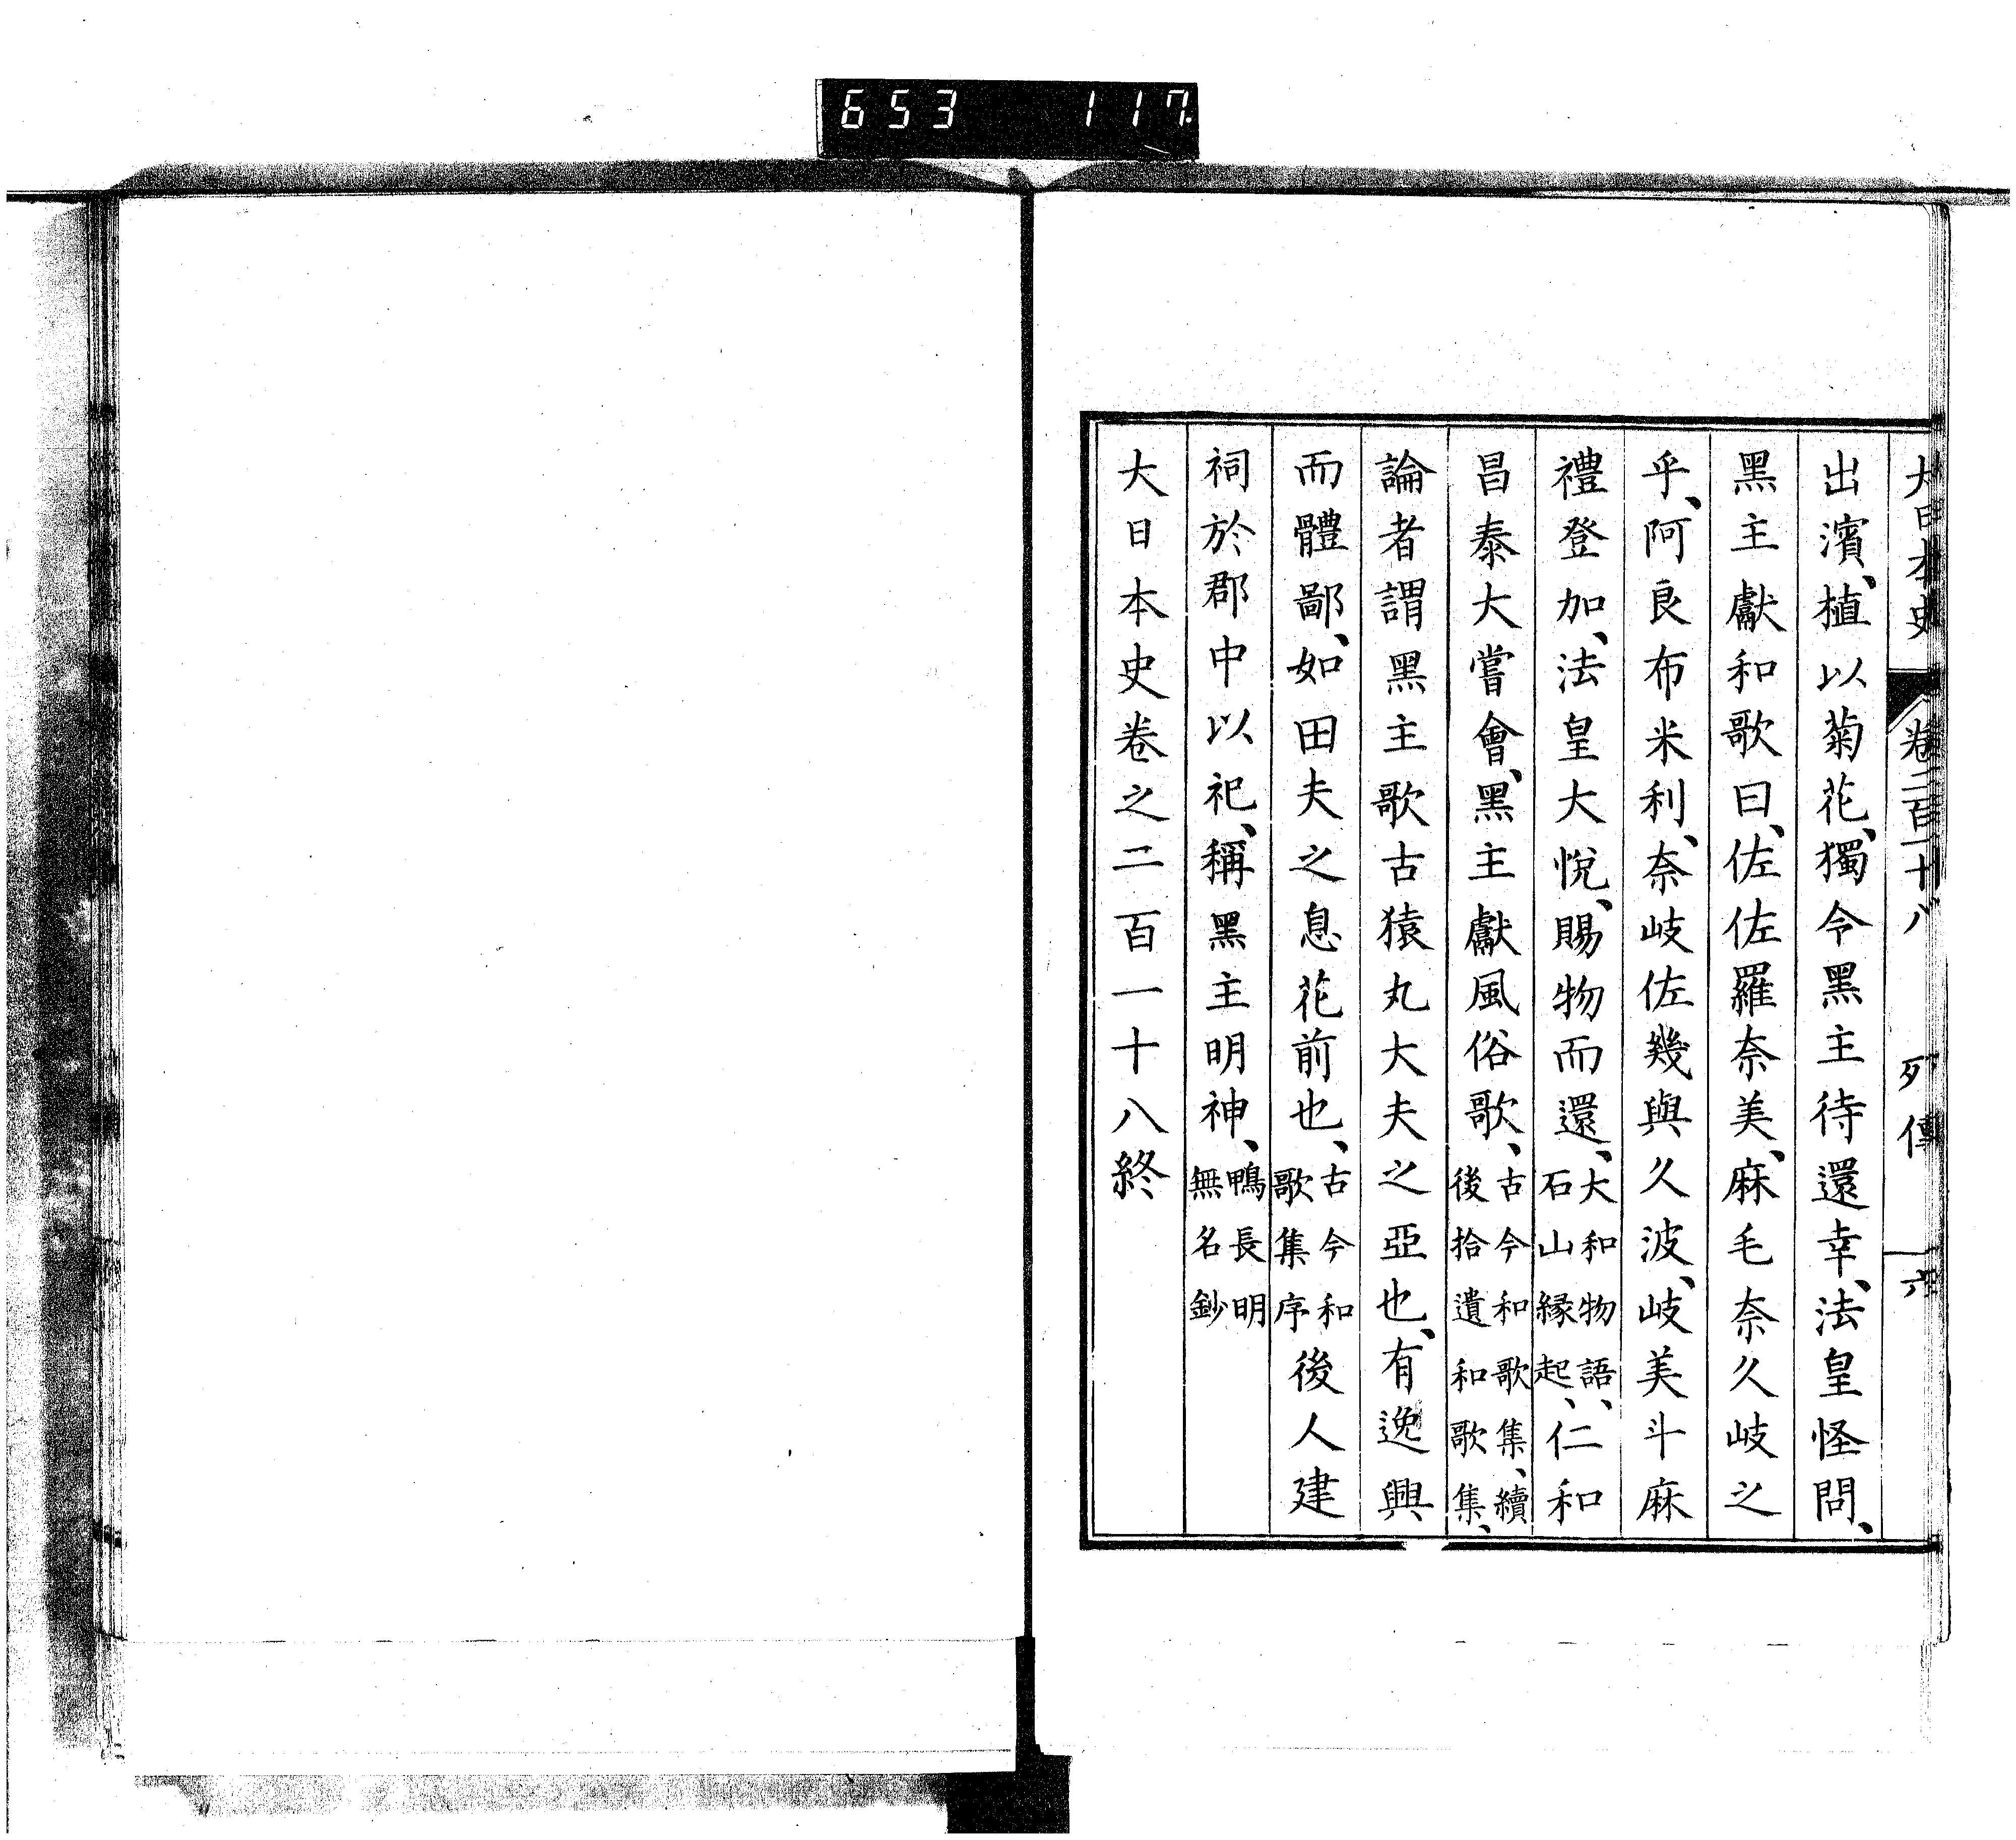 653 117
大日本史 卷二百一十八 列傳 六
出濱、植以菊花、獨令黑主待還幸、法皇怪問、
黑主獻和歌曰、佐佐羅奈美、麻毛奈久岐之
乎、阿良布米利、奈岐佐幾與久波、岐美斗麻
禮登加、法皇大悅、賜物而還、大和物語、石山縁起、仁和
昌泰大嘗會、黑主獻風俗歌、古今和歌集、續後拾遺和歌集、
論者謂黑主歌古猿丸大夫之亞也、有逸興
而體鄙、如田夫之息花前也、古今和歌集序後人建
祠於郡中以祀、稱黑主明神、鴨長明無名鈔
大日本史卷之二百一十八終